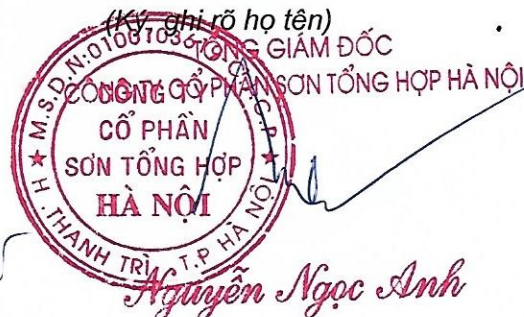 (Ký, ghi rõ họ tên)
TỔNG GIÁM ĐỐC
CÔNG TY CỔ PHẦN SƠN TỔNG HỢP HÀ NỘI
M.S.D.N:
C.T.C.P
CÔNG TY
CỔ PHẦN
SƠN TỔNG HỢP
HÀ NỘI
H. THANH TRÌ T.P HÀ NỘI
Nguyễn Ngọc Anh